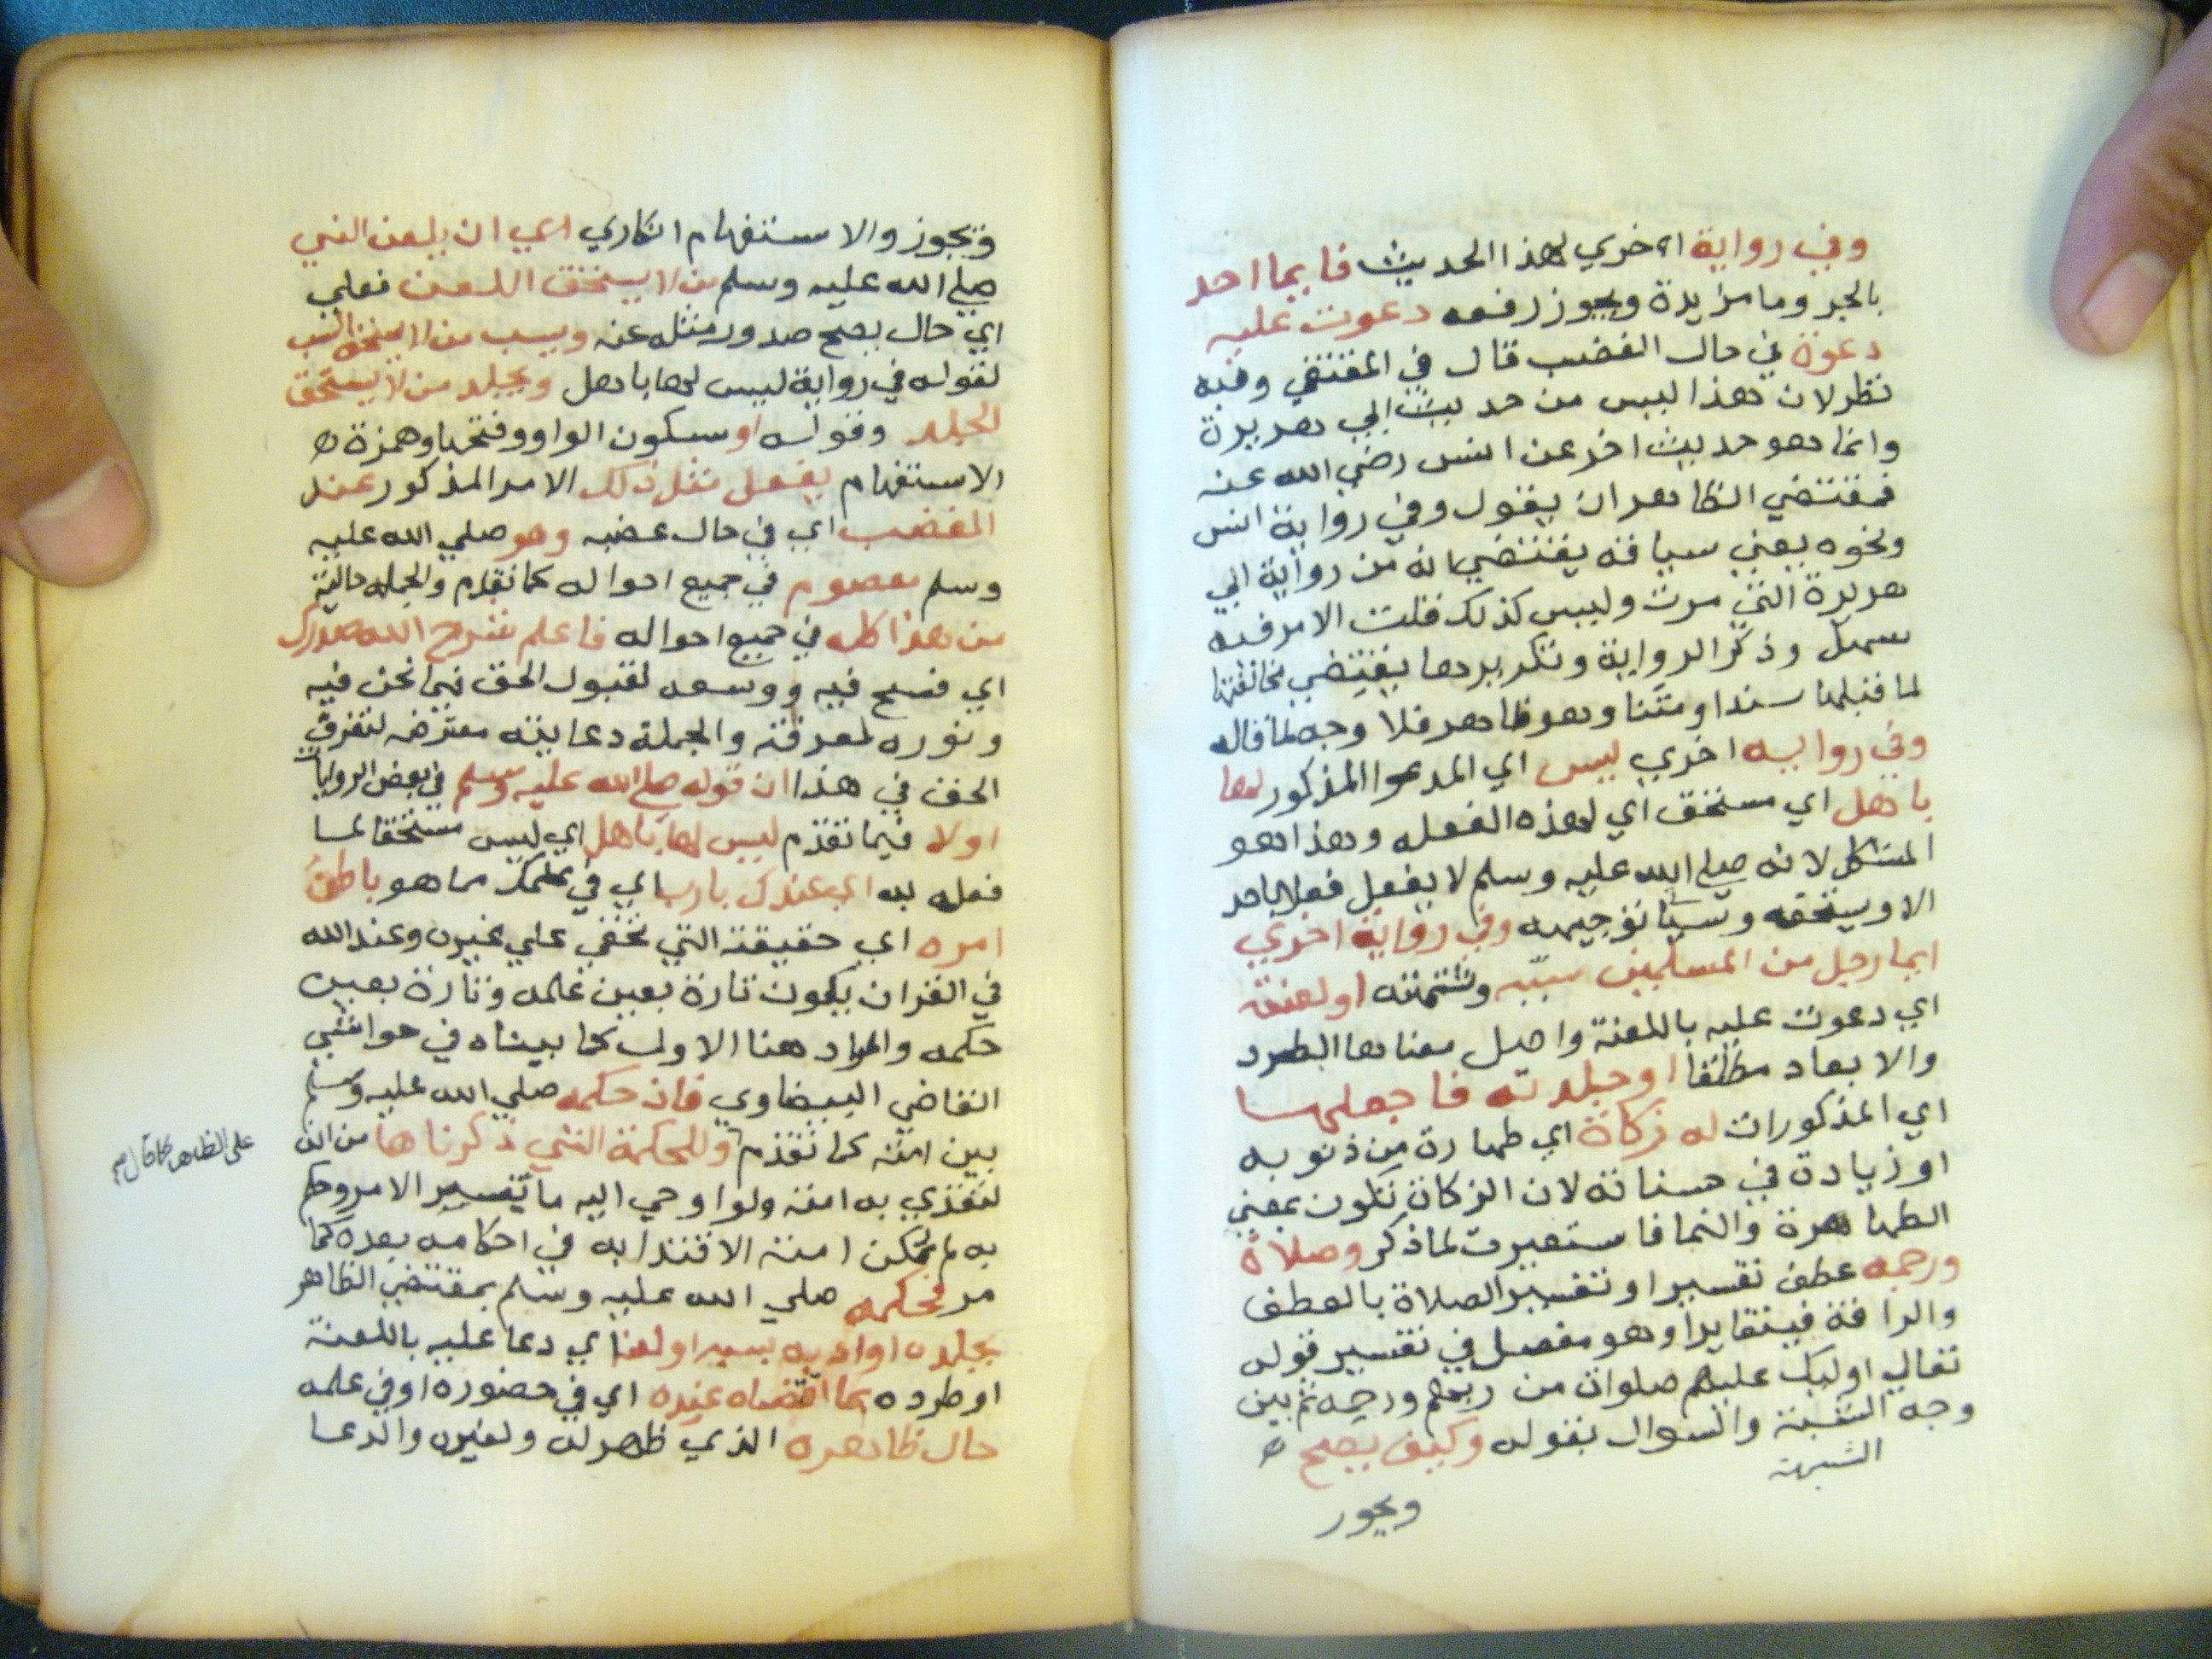 وفي رواية اخري لهذا الحديث فايما احد
بالجر وما مزيدة ويجوز رفعه دعوت عليه
دعوة في حال الغضب قال في المقتفي وفيه
نظر لان هذا ليس من حديث ابي هريرة
وانما هو حديث اخر عن انس رضي الله عنه
فمقتضي الظاهر ان يقول وفي رواية انس
ونحوه يعني سياقه يقتضي انه من رواية ابي
هريرة التي مرت وليس كذلك قلت الامر فيه
سهل وذكر الرواية وتكريرها يقتضي مخالفتها
لما قبلها سندا ومتنا وهو ظاهر فلا وجه لما قاله
وفي روايه اخري ليس اي المدعوا المذكور لها
باهل اي مستحق اي لهذه الفعله وهذا هو
المشكل لانه صلي الله عليه وسلم لا يفعل فعلا باحد
الا ويستحقه وسياتي توجيهه وفي رواية اخري
ايما رجل من المسلمين سببه وشتمته او لعنته
اي دعوت عليه باللعنة واصل معناها الطرد
والابعاد مطلقا او جلدته فاجعلها
اي المذكورات له زكاة اي طهارة من ذنوبه
او زيادة في حسناته لان الزكاة تكون بمعني
الطهاهرة والنما فاستعيرت لما ذكر وصلاة
ورحمه عطف تفسير او تفسير الصلاة بالعطف
والرافة فيتقايرا وهو مفصل في تفسير قوله
تعالي اوليك عليهم صلوات من ربهم ورحمه ثم بين
وجه الشبة والسوال بقوله وكيف يصح ه
الشبهة
ويجور
ويجوز والاستفهام انكاري اي ان يلعن النبي
صلي الله عليه وسلم من لا يستحق اللعن فعلي
اي حال يصح صدور مثله عنه ويسب من لا يستحق السب
لقوله في رواية ليس لها باهل ويجلد من لا يستحق
الجلد وقوله او سكون الواو وفتحها وهمزة ه
الاستفهام يفعل مثل ذلك الامر المذكور عند
الغضب اي في حال غضبه وهو صلي الله عليه
وسلم معصوم في جميع احواله كما تقدم والجمله حالية
من هذا كله في جميع احواله فاعلم شرح الله صدرك
اي فسح فيه ووسعه لقبول الحق فيما نحن فيه
ونوره لمعرفته والجملة دعابيته معترضه لتفرق
الحق في هذا ان قوله صلي الله عليه وسلم في بعض الروايات
اولا فيما تقدم ليس لها باهل اي ليس مستحقا لما
فعله به اي عندك يارب اي في علمك مما هو باطن
امره اي حقيقته التي تخفي علي غيره وعند الله
في القران يكون تارة بعين علمه وتارة بعين
حكمه والمراد هنا الاول كما بيناه في حواشي
القاضي البيضاوي فان حكمه صلي الله عليه وسلم
بين امته كما تقدم وللحكمة التي ذكرناها من ان
على الظاهر كما قال صح
لتقتدي به امته ولو اوحي اليه ما تفسير الامر وحكم
به لم يمكن امته الاقتدا به في احكامه بعده كما
مر فحكمه صلي الله عليه وسلم بمقتضي الظاهر
بجلده او ادبه بسبه او لعنه اي دعا عليه باللعنة
او طرده بما اقتضاه عنده اي في حضوره او في علمه
حال ظاهره الذي ظهر له ولغيره والدعا